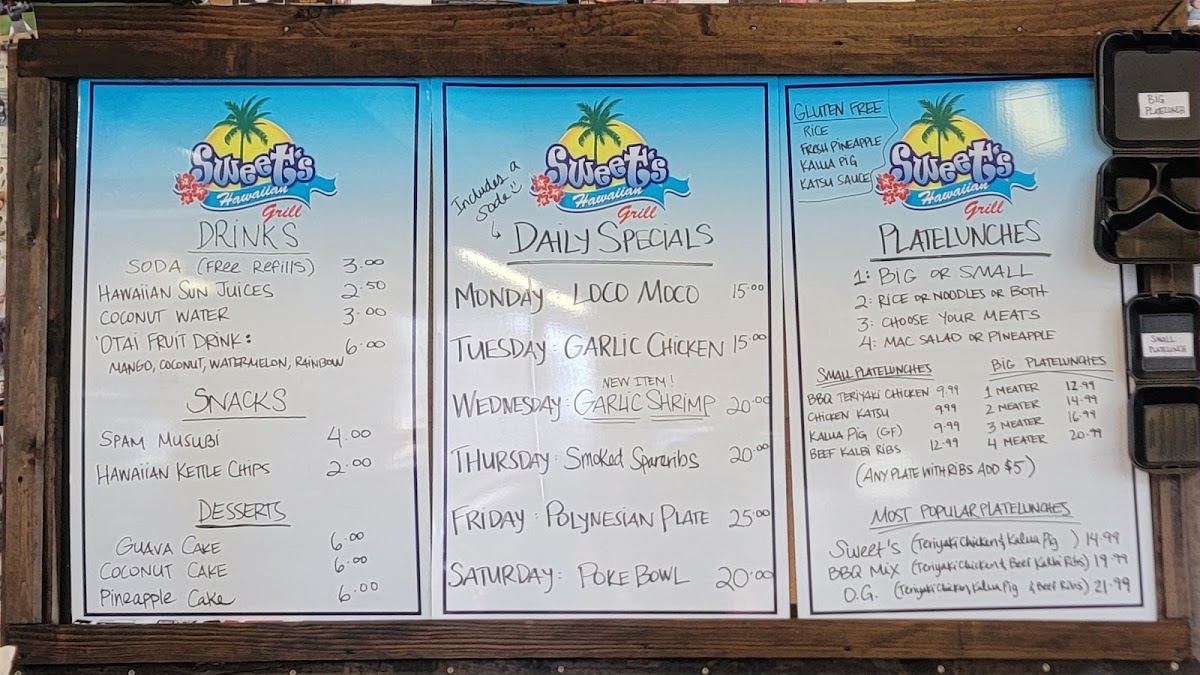 Sweet's
Hawaiian
Grill
DRINKS
SODA (FREE REFILLS) 3.00
HAWAIIAN SUN JUICES 2.50
COCONUT WATER 3.00
'OTAI FRUIT DRINK: 6.00
MANGO, COCONUT, WATERMELON, RAINBOW
SNACKS
SPAM MUSUBI 4.00
HAWAIIAN KETTLE CHIPS 2.00
DESSERTS
GUAVA CAKE 6.00
COCONUT CAKE 6.00
PINEAPPLE CAKE 6.00
Sweet's
Hawaiian
Grill
Includes a
soda
DAILY SPECIALS
MONDAY: LOCO MOCO 15.00
TUESDAY: GARLIC CHICKEN 15.00
NEW ITEM!
WEDNESDAY: GARLIC SHRIMP 20.00
THURSDAY: SMOKED SPARERIBS 20.00
FRIDAY: POLYNESIAN PLATE 25.00
SATURDAY: POKE BOWL 20.00
GLUTEN FREE
RICE
FRESH PINEAPPLE
KALUA PIG
KATSU SAUCE
Sweet's
Hawaiian
Grill
PLATELUNCHES
1: BIG OR SMALL
2: RICE OR NOODLES OR BOTH
3: CHOOSE YOUR MEATS
4: MAC SALAD OR PINEAPPLE
SMALL PLATELUNCHES
BBQ TERIYAKI CHICKEN 9.99
CHICKEN KATSU 9.99
KALUA PIG (GF) 9.99
BEEF KALBI RIBS 12.99
BIG PLATELUNCHES
1 MEATER 12.99
2 MEATER 14.99
3 MEATER 16.99
4 MEATER 20.99
(ANY PLATE WITH RIBS ADD $5)
MOST POPULAR PLATELUNCHES
SWEET'S (Teriyaki Chicken & Kalua Pig ) 14.99
BBQ MIX (Teriyaki Chicken & Beef Kalbi Ribs) 19.99
O.G. (Teriyaki Chicken, Kalua Pig & Beef Ribs) 21.99
BIG
PLATELUNCH
SMALL
PLATELUNCH